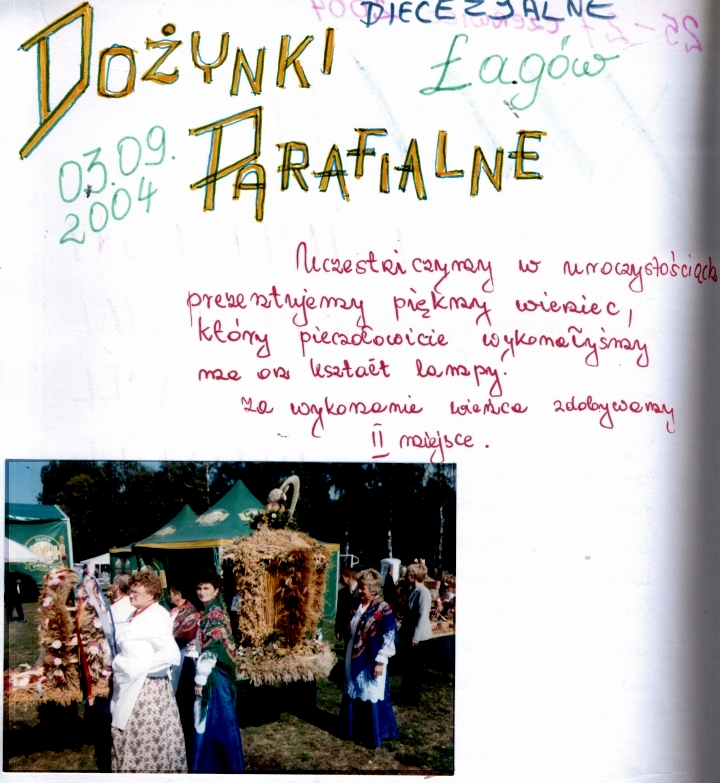 DIECEZJALNE
DOŻYNKI
Łagów
03.09.
2004
PARAFIALNE
Uczestniczymy w uroczystościach
prezentujemy piękny wieniec,
który pieczołowicie wykonałyśmy
na kształt lampy.
Za wykonanie wieńca zdobywamy
II miejsce.